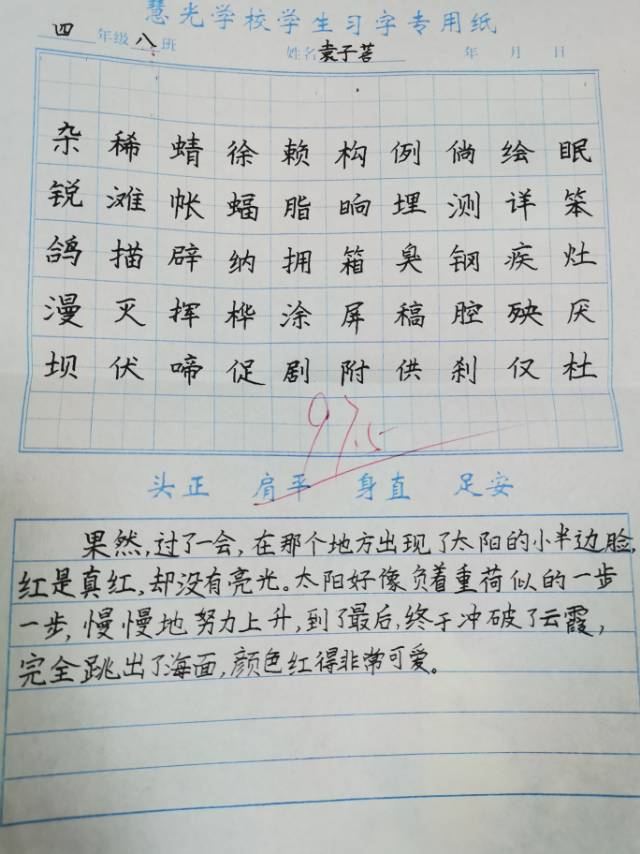 慧光学校学生习字专用纸
四年级八班 姓名袁子苔 年 月 日
杂稀蜻徐赖构例倘绘眠
锐滩帐蝠脂晌埋测详笨
鸽描辟纳拥箱臭钢疾灶
漫灭挥桦涂屏稿腔殃厌
坝伏啼促剧附供刹仅杜
97.5
头正 肩平 身直 足安
果然,过了一会,在那个地方出现了太阳的小半边脸,
红是真红,却没有亮光。太阳好像负着重荷似的一步
一步,慢慢地努力上升,到了最后,终于冲破了云霞,
完全跳出了海面,颜色红得非常可爱。